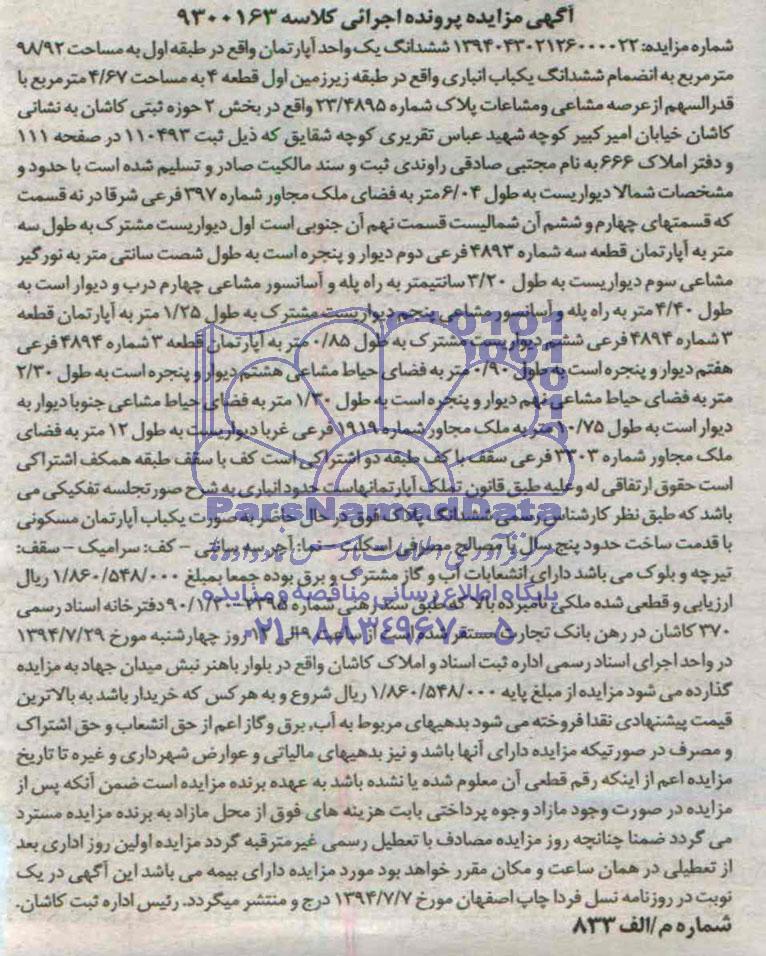 آگهی مزایده پرونده اجرائی کلاسه ۹۳۰۰۱۶۳
شماره مزایده: ۱۳۹۴۰۴۳۰۲۱۲۶۰۰۰۰۲۲ ششدانگ یک واحد آپارتمان واقع در طبقه اول به مساحت ۹۸/۹۲
مترمربع به انضمام ششدانگ یکباب انباری واقع در طبقه زیرزمین اول قطعه ۴ به مساحت ۴/۶۷ مترمربع با
قدرالسهم از عرصه مشاعی ومشاعات پلاک شماره ۲۳/۴۸۹۵ واقع در بخش ۲ حوزه ثبتی کاشان به نشانی
کاشان خیابان امیرکبیر کوچه شهید عباس تقریری کوچه شقایق که ذیل ثبت ۱۱۰۴۹۳ در صفحه ۱۱۱
و دفتر املاک ۶۶۶ به نام مجتبی صادقی راوندی ثبت و سند مالکیت صادر و تسلیم شده است با حدود و
مشخصات شمالا دیواریست به طول ۶/۰۴ متر به فضای ملک مجاور شماره ۳۹۷ فرعی شرقا در نه قسمت
که قسمتهای چهارم و ششم آن شمالیست قسمت نهم آن جنوبی است اول دیواریست مشترک به طول سه
متر به آپارتمان قطعه سه شماره ۴۸۹۳ فرعی دوم دیوار و پنجره است به طول شصت سانتی متر به نورگیر
مشاعی سوم دیواریست به طول ۳/۲۰ سانتیمتر به راه پله و آسانسور مشاعی چهارم درب و دیوار است به
طول ۴/۴۰ متر به راه پله و آسانسور مشاعی پنجم دیواریست مشترک به طول ۱/۲۵ متر به آپارتمان قطعه
۳ شماره ۴۸۹۴ فرعی ششم دیواریست مشترک به طول ۰/۸۵ متر به آپارتمان قطعه ۳ شماره ۴۸۹۴ فرعی
هفتم دیوار و پنجره است به طول ۰/۹۰ متر به فضای حیاط مشاعی هشتم دیوار و پنجره است به طول ۲/۳۰
متر به فضای حیاط مشاعی نهم دیوار و پنجره است به طول ۱/۳۰ متر به فضای حیاط مشاعی جنوبا دیوار به
دیوار است به طول ۱۰/۷۵ متر به ملک مجاور شماره ۱۹۱۹ فرعی غربا دیواریست به طول ۱۲ متر به فضای
ملک مجاور شماره ۳۳۰۳ فرعی سقف با کف طبقه دو اشتراکی است کف با سقف طبقه همکف اشتراکی
است حقوق ارتفاقی له وعلیه طبق قانون تملک آپارتمانهاست حدود انباری به شرح صورتجلسه تفکیکی می
باشد که طبق نظر کارشناس رسمی ششدانگ پلاک فوق در حال حاضر به صورت یکباب آپارتمان مسکونی
با قدمت ساخت حدود پنج سال با مصالح مصرفی اسکلت - نما: آجر سه سانتی - کف: سرامیک - سقف:
تیرچه و بلوک می باشد دارای انشعابات آب و گاز مشترک و برق بوده جمعا بمبلغ ۱/۸۶۰/۵۴۸/۰۰۰ ریال
ارزیابی و قطعی شده ملکی نامبرده بالا که طبق سند رهنی شماره ۲۳۹۵ - ۹۰/۱/۲۰ دفترخانه اسناد رسمی
۳۷۰ کاشان در رهن بانک تجارت مستقر شده است از ساعت ۹ الی ۱۲ روز چهارشنبه مورخ ۱۳۹۴/۷/۲۹
در واحد اجرای اسناد رسمی اداره ثبت اسناد و املاک کاشان واقع در بلوار باهنر نبش میدان جهاد به مزایده
گذارده می شود مزایده از مبلغ پایه ۱/۸۶۰/۵۴۸/۰۰۰ ریال شروع و به هر کس که خریدار باشد به بالاترین
قیمت پیشنهادی نقدا فروخته می شود بدهیهای مربوط به آب، برق وگاز اعم از حق انشعاب و حق اشتراک
و مصرف در صورتیکه مزایده دارای آنها باشد و نیز بدهیهای مالیاتی و عوارض شهرداری و غیره تا تاریخ
مزایده اعم از اینکه رقم قطعی آن معلوم شده یا نشده باشد به عهده برنده مزایده است ضمن آنکه پس از
مزایده در صورت وجود مازاد وجوه پرداختی بابت هزینه های فوق از محل مازاد به برنده مزایده مسترد
می گردد ضمنا چنانچه روز مزایده مصادف با تعطیل رسمی غیرمترقبه گردد مزایده اولین روز اداری بعد
از تعطیلی در همان ساعت و مکان مقرر خواهد بود مورد مزایده دارای بیمه می باشد این آگهی در یک
نوبت در روزنامه نسل فردا چاپ اصفهان مورخ ۱۳۹۴/۷/۷ درج و منتشر میگردد. رئیس اداره ثبت کاشان.
شماره م/الف ۸۳۳
ParsNamadData
پایگاه اطلاع رسانی مناقصه و مزایده
۰۲۱-۸۸۳۴۹۶۷۰-۵